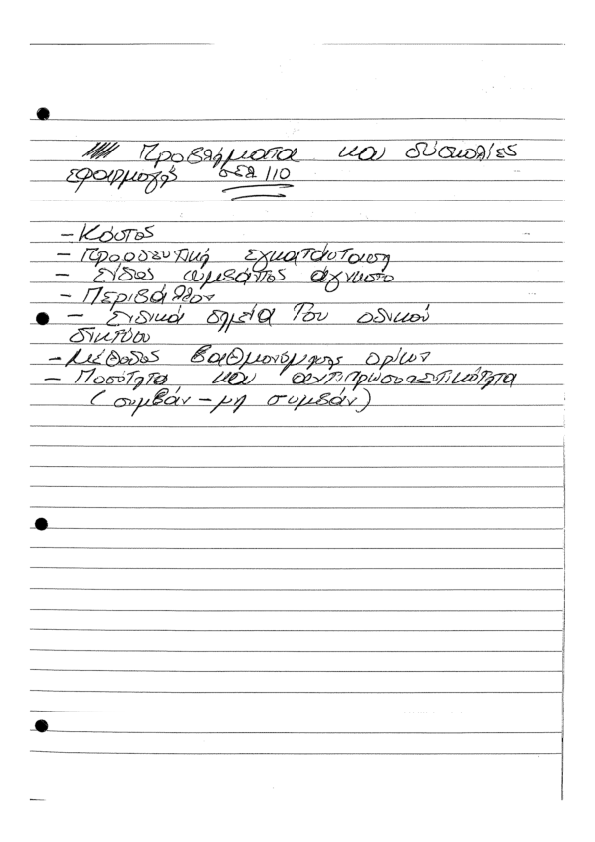 Προβλήματα και δύσκολίες
εφαρμογής σελ 110
- Κόστος
- Προοδευτική εγκατάσταση
- Είδος συμβάντος άγνωστο
- Περιβάλλον
- Ειδικά σημεία του οδικού
δικτύου
- Μέθοδος βαθμονόμησης ορίων
- Ποσότητα και αντιπροσωπευτικότητα
(συμβάν - μη συμβάν)